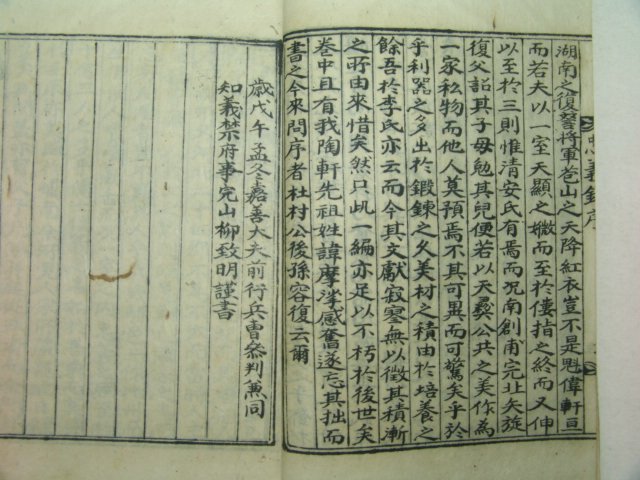 湖南之復讐將軍巻山之天降紅衣豈不是魁偉軒亘
而若夫以一室天顯之媺而至於僂指之終而又伸
以至於三則惟清安氏有焉而況南創甫完北矢旋
復父詔其子母勉其兒便若以天彛公共之美作為
一家私物而他人莫預焉不其可異而可驚矣乎於
乎利器之多出於鍛鍊之久美材之積由於培養之
餘吾於李氏亦云而今其文獻寂寥無以徵其積漸
之所由來惜矣然只此一編亦足以不朽於後世矣
巻中且有我陶軒先祖姓諱摩挲感奮遂忘其拙而
書之今來問序者杜村公後孫容復云爾
歳戊午孟冬嘉善大夫前行兵曹參判兼同
知義禁府事完山柳致明謹書
忠義錄序